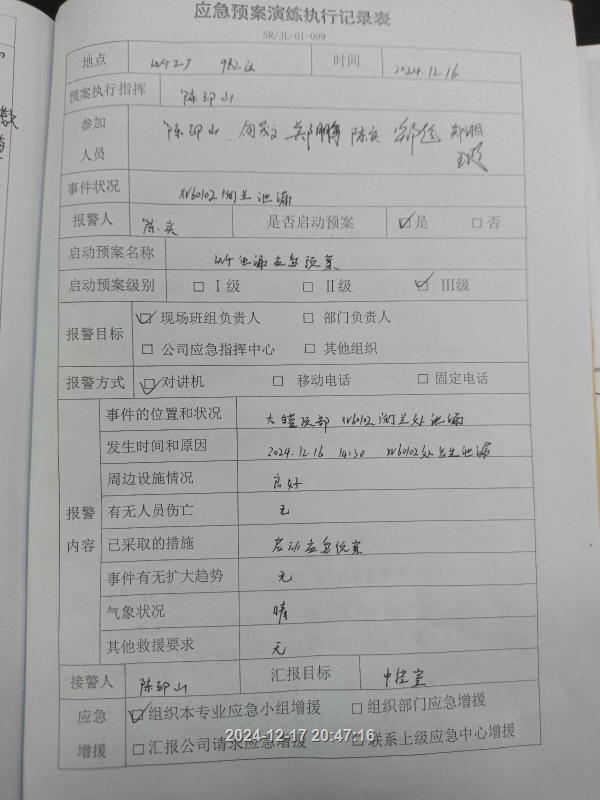 应急预案演练执行记录表
SR/JL-01-099
地点 982区 时间 2024.12.16
预案执行指挥 陈卲山
参加人员 陈卲山 陈奕
事件状况 XV60102阀兰泄漏
报警人 陈奕 是否启动预案 ☑是 □否
启动预案名称 泄漏应急预案
启动预案级别 □Ⅰ级 □Ⅱ级 ☑Ⅲ级
报警目标 ☑现场班组负责人 □部门负责人
□公司应急指挥中心 □其他组织
报警方式 ☑对讲机 □移动电话 □固定电话
报警内容
事件的位置和状况 大罐 XV60102阀兰处泄漏
发生时间和原因 2024.12.16 14:30 XV60102处发生泄漏
周边设施情况 良好
有无人员伤亡 无
已采取的措施 启动应急预案
事件有无扩大趋势 无
气象状况 晴
其他救援要求 无
接警人 陈卲山 汇报目标 中控室
应急增援 ☑组织本专业应急小组增援 □组织部门应急增援
□汇报公司请求应急增援 □联系上级应急中心增援
2024-12-17 20:47:16